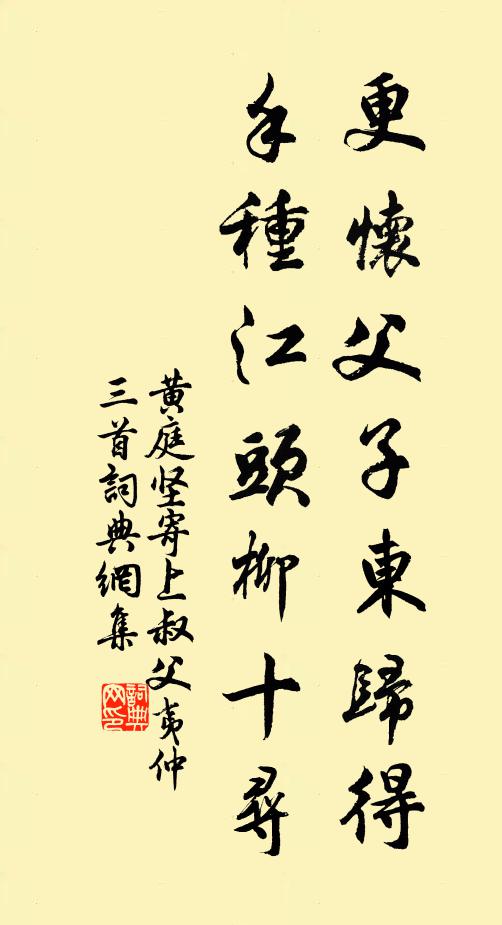 更懷父子東歸得
手種江頭柳十尋
黄庭坚寄上叔父夷仲
三首詞典網集
詞典网印